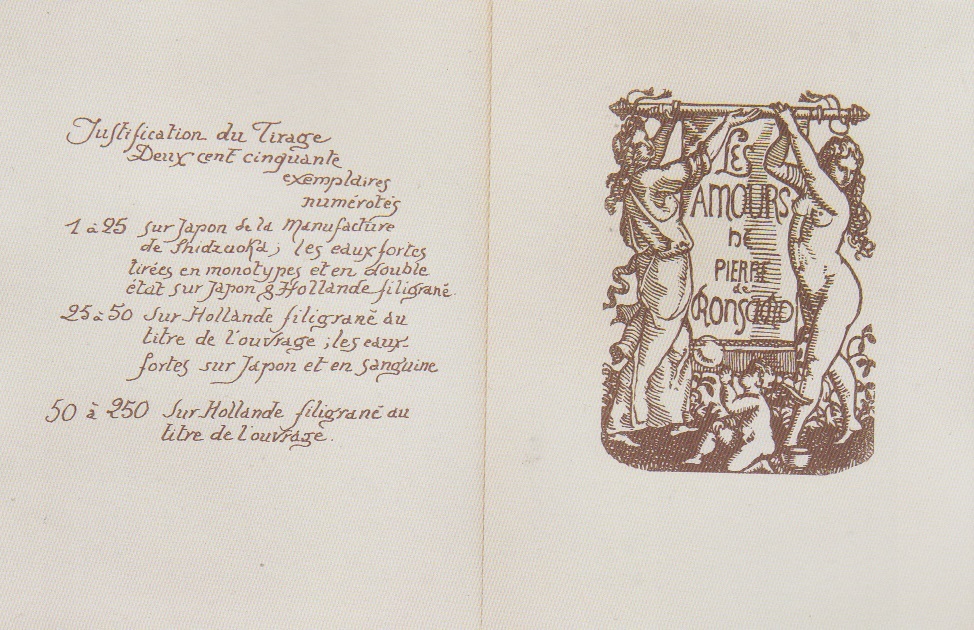 Justification du Tirage
Deux cent cinquante
exemplaires
numérotés
1 à 25 sur Japon de la Manufacture
de Shidzuoka; les eaux fortes
tirées en monotypes et en double
état sur Japon & Hollande filigrané.
25 à 50 sur Hollande filigrané au
titre de l'ouvrage; les eaux
fortes sur Japon et en sanguine
50 à 250 sur Hollande filigrané au
titre de l'ouvrage.
LES
AMOURS
DE
PIERRE
de
RONSARD